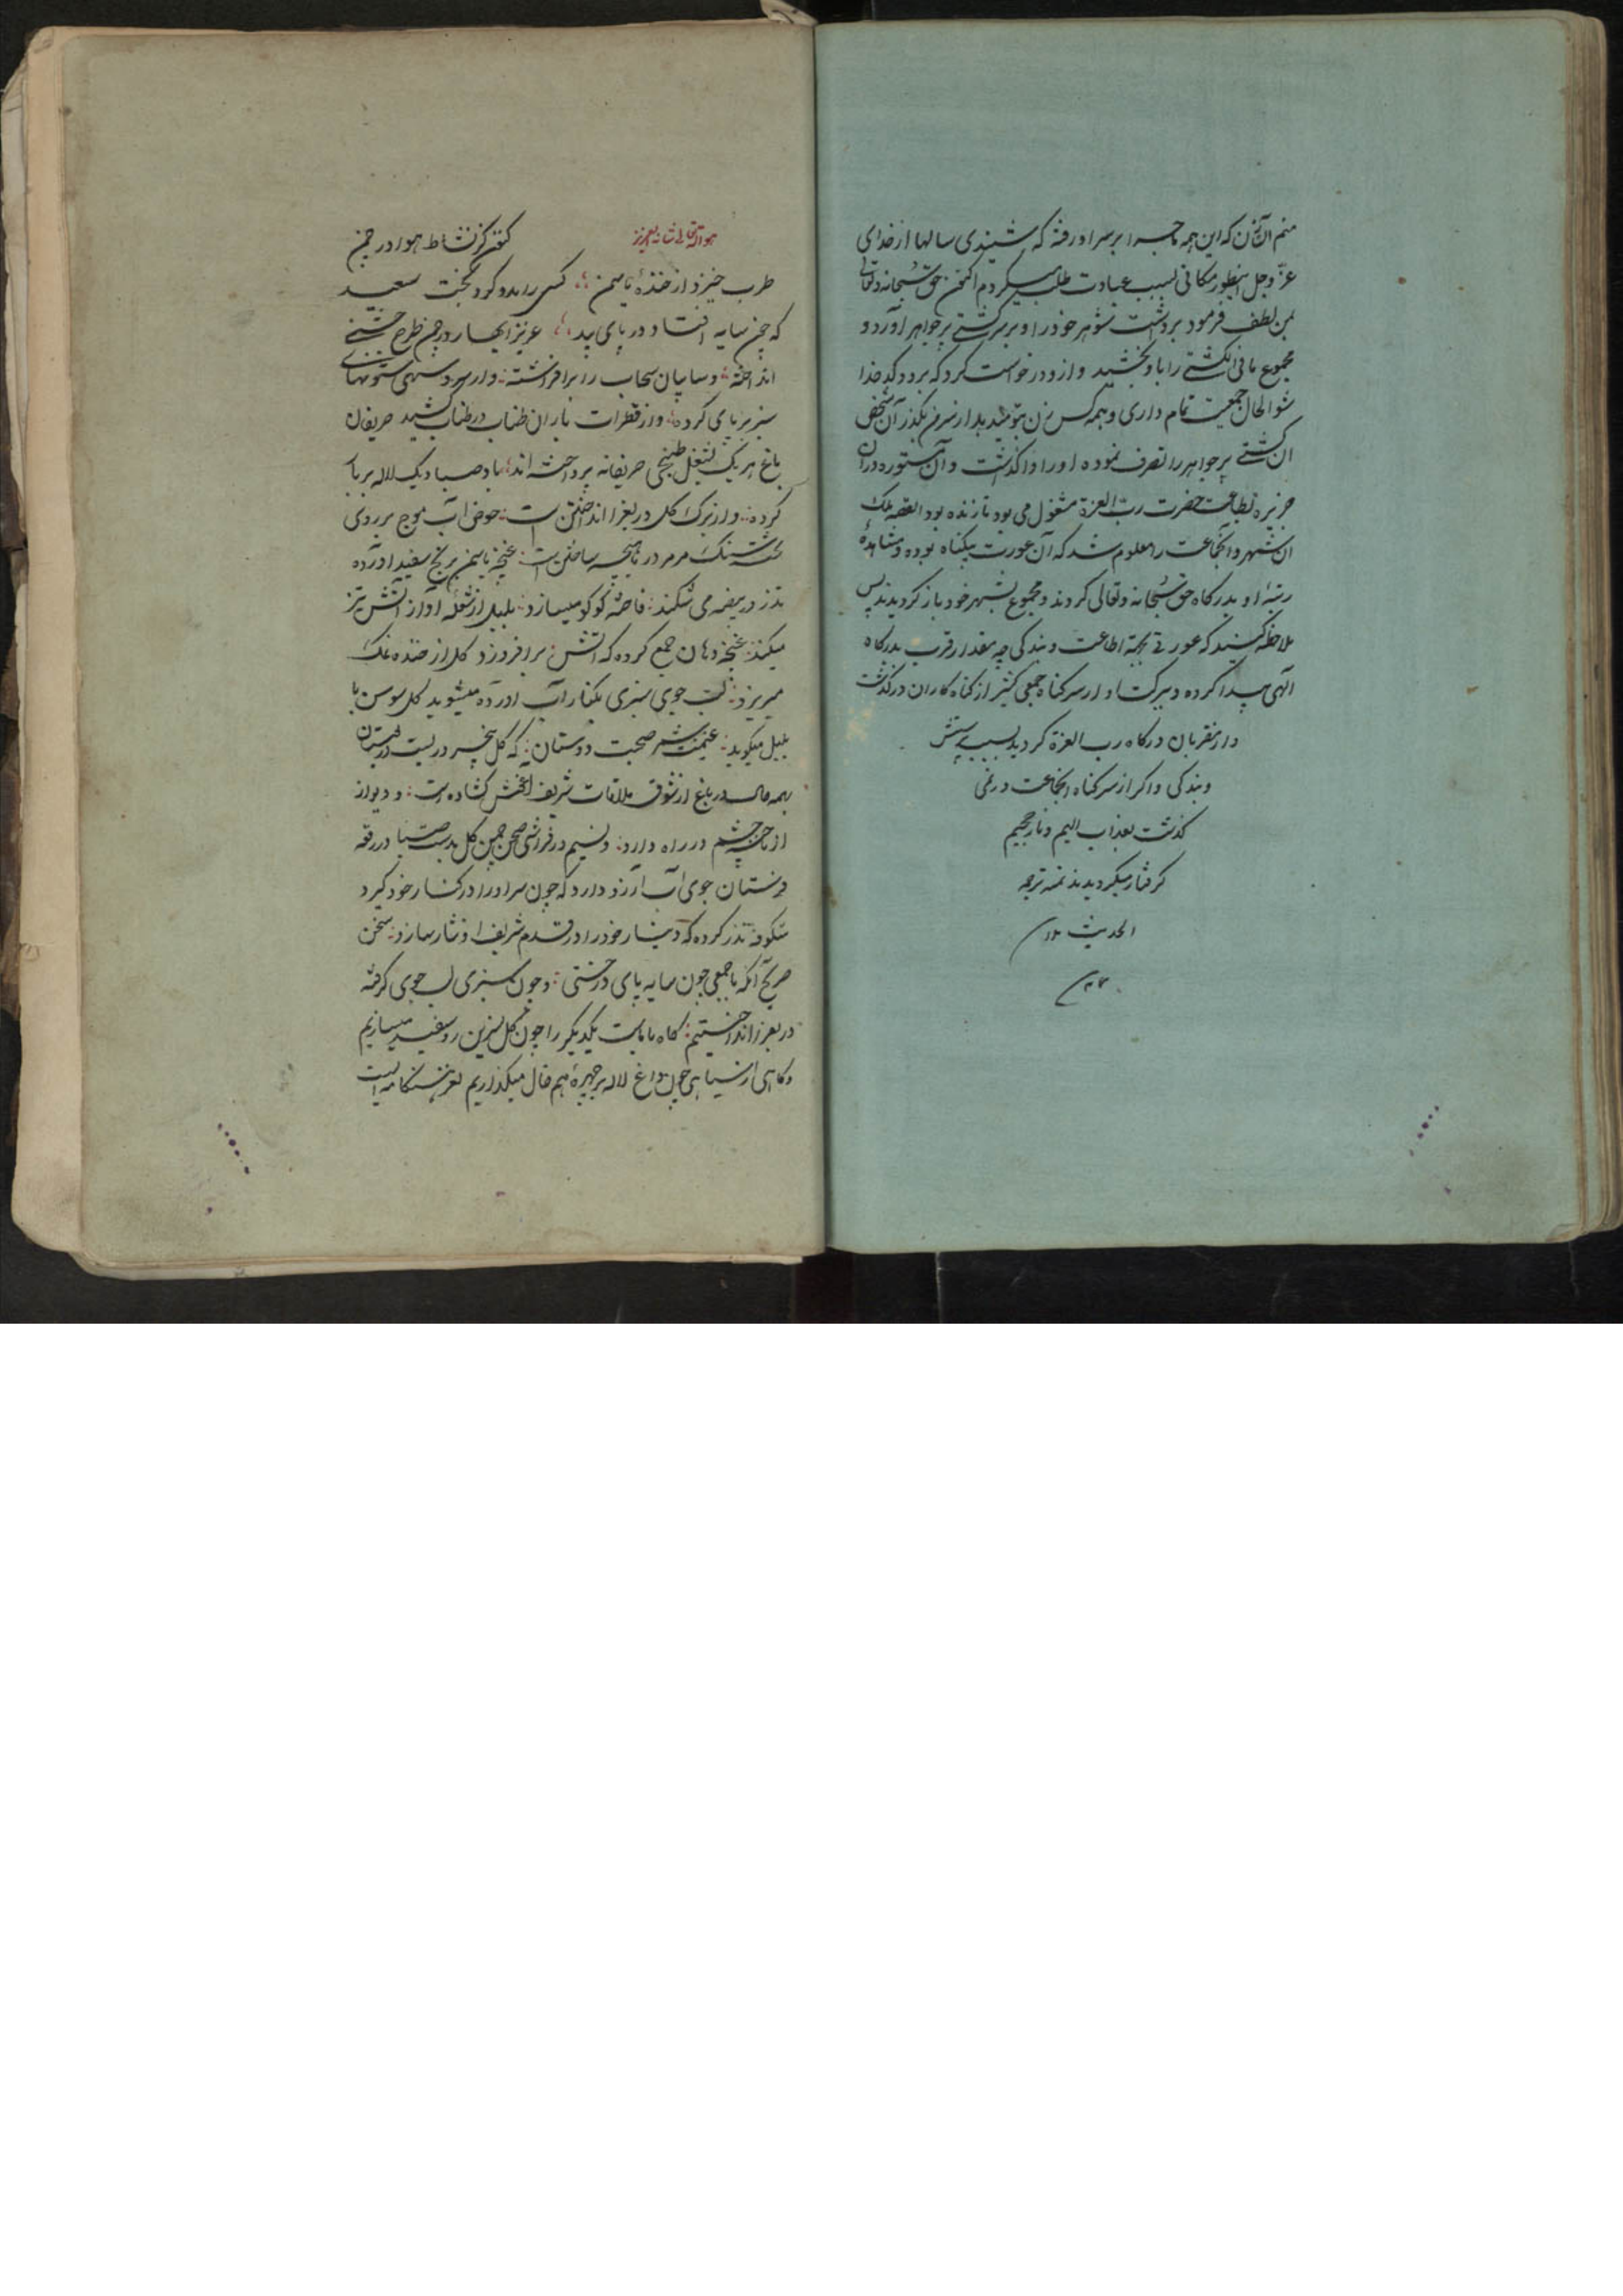 منم آن زن که این همه ماجرا بر سر او رفته که شنیدی سالها از خدای
عزّ و جل اینطور مکانی بسبب عبادت طلب میکردم اکنون حق سبحانه و تعالی
بمن لطف فرمود برداشت شوهر خود را و بر سر کشتی پر جواهر آورد و
مجموع مافی الکشتی را باو بخشید و از و درخواست کرد که برو و کدخدا
شو الحال جمعیت تمام داری و همه کس زن بتو میدهد از سر من بگذر آن شخص
آن کشتی پر جواهر را تصرف نموده او را واگذاشت و آن مستوره در آن
جزیره بطاعت حضرت ربّ العزة مشغول می بود تا زنده بود القصه ملک
آن شهر و انجماعت را معلوم شد که آن عورت بیگناه بوده و مشاهدهٔ
رتبهٔ او بدرگاه حق سبحانه و تعالی کردند و مجموع بشهر خود باز کردیدند پس
ملاحظه کنید که عورتی بجهة اطاعت و بندکی چه مقدار قرب بدرکاه
آلهی پیدا کرده و ببرکت او از سر کناه جمعی کثیر از کناه کاران درگذشت
و از مقربان درکاه رب العزة کردید بسبب پرستش
و بندکی و اکر از سر کناه انجماعت در نمی
کذشت بعذاب الیم و نار جحیم
کرفتار میکردیدند تمته ترجمه
الحدیث
هو الله تعالی شانه العزیز
کنون کز نشاط هوا در چمن
طرب خیزد از خندهٔ یاسمن کسی را بدو کرد بخت سعید
که چون سایه افتاد در پای بید عزیز ابهار در چمن طرح جشنی
انداخته و سایبان سحاب را برافراشته و از سرو سهی ستونهای
سبز بر پای کرده و از قطرات باران طناب در طناب کشید حریفان
باغ هر یک بشغل طبخی حریفانه پرداخته اند باد صبا دیک لاله بر بار
کرده و از برک کل در بغرا انداختن است حوض آب موج بر روی
تخته سنک مرمر در ماهیچه ساختن است غنچه یاسمن برنج سفید آورده
تذرو بیضه می شکند فاخته کوکو میسازد بلبل از شعلهٔ آواز آتش تیز
میکند غنچه دهان جمع کرده که آتش برافروزد کل از خنده نمک
میریزد لب جوی سبزی بکنار آب آورده میشوید کل سوسن با
بلبل میکوید غنیمت شمر صحبت دوستان که کل پنجروز است در بوستان
بهمه حال در باغ از شوق ملاقات شریف آغوش کشاده است و دیوار
از رخنه چشم در راه دارد و نسیم در فراشی صحن چمن کل بدست صبا در رقعه
فرستان جوی آب آرزو دارد که چون سرو او را در کنار خود کیرد
شکوفه نذر کرده که دینار خود را در قدم شریف او نثار سازد سخن
صریح آنکه با جمعی چون سایه پای درختی و چون سبزی لب جوی کرفته
در بغرا انداختنیم کاه با ماست یکدیکر را چون کل نسرین رو سفید میسازیم
و کاهی از سیاهی چون داغ لاله بر چهرهٔ هم خال میکذاریم